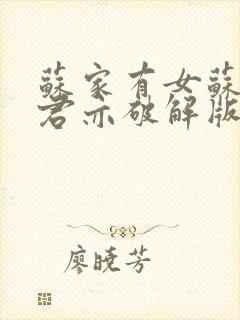 蘇家有女蘇
君亦破解版
廖曉芳